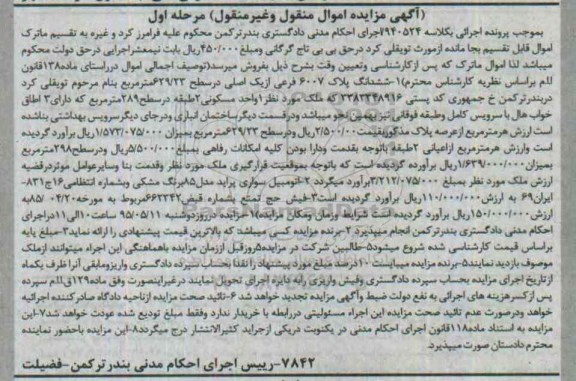 (آگهی مزایده اموال منقول وغیرمنقول) مرحله اول
بموجب پرونده اجرائی بکلاسه ۷۹۴۰۵۲۴اجرای احکام مدنی دادگستری بندرترکمن محکوم علیه فرامرز کرد و غیره به تقسیم ماترک
اموال قابل تقسیم بجا مانده ازمورث تویقلی کرد درحق بی بی تاج گرگانی ومبلغ۴۵۰/۰۰۰ریال بابت نیمعشراجرایی درحق دولت محکوم
میباشد لذا اموال ماترک که پس ازکارشناسی وتعیین وقت بشرح ذیل بفروش میرسد(توصیف اجمالی اموال درراستای ماده۱۳۸قانون
ا.ا.م براساس نظریه کارشناس محترم)۱-ششدانگ پلاک ۶۰۰۷ فرعی ازیک اصلی درسطح ۶۲۹/۲۳مترمربع بنام مرحوم تویقلی کرد
دربندرترکمن خ جمهوری کد پستی ۳۳۸۳۳۴۸۹۱۶ که ملک مورد نظر۱واحد مسکونی۲طبقه درسطح۲۸۹مترمربع که دارای۳ اطاق
خواب هال با سرویس کامل وطبقه فوقانی نیزبهمین نحو میباشد ودرقسمت دیگرساختمان انباری ودرجای دیگرسرویس بهداشتی بناشده
است ارزش هرمترمربع ازعرصه پلاک مذکوربقیمت۲/۵۰۰/۰۰۰ریال ودرسطح ۶۲۹/۲۳مترمربع بمیزان ۱/۵۷۳/۰۷۵/۰۰۰ریال برآورد گردیده
است وارزش هرمترمربع ازاعیانی ۲طبقه باتوجه بقدمت ودارا بودن کلیه امکانات رفاهی بمبلغ۵/۵۰۰/۰۰۰ریال ودرسطح۲۹۸مترمربع
بمیزان۱/۶۳۹/۰۰۰/۰۰۰ریال برآورده گردیده است که باتوجه بموقعیت قرارگیری ملک مورد نظر وقدمت بنا وسایرعوامل موثردرقضیه
ارزش ملک مورد نظر بمبلغ ۳/۲۱۲/۰۷۵/۰۰۰برآورد میگردد ۲-اتومبیل سواری پراید مدل۸۵برنگ مشکی وبشماره انتظامی۱۶ج۸۳۱-
ایران۶۹ به ارزش۱۱۰/۰۰۰/۰۰۰ریال برآورد گردیده است۳-فیش حج تمتع بشماره فیش۶۶۲۳۴۲مربوط به مورخه۸۵/۰۴/۲۰ به
ارزش۱۵۰/۰۰۰/۰۰۰ریال برآورد گردیده است شرایط وزمان ومکان مزایده)۱-مزایده درروزدوشنبه ۹۵/۰۵/۱۱ ساعت۱۰الی۱۱دراجرای
احکام مدنی دادگستری بندرترکمن انجام میپذیرد ۲-برنده مزایده کسی میباشد که بالاترین قیمت پیشنهادی را ارائه نماید۳-مبلغ پایه
براساس قیمت کارشناسی شده شروع میشود۵-طالبین شرکت در مزایده۵روزقبل اززمان مزایده باهماهنگی این اجراء میتوانند ازملک
موصوف بازدید نمایند۵-برنده مزایده میبایست۱۰درصد مبلغ مورد پیشنهاد را نقدا بحساب سپرده دادگستری واریزومابقی آنرا ظرف یکماه
ازتاریخ اجرای مزایده بحساب سپرده دادگستری وفیش واریزی رابه دایره اجرای تحویل نمایند درغیراینصورت وفق ماده۱۲۹ق.ا.ا.م سپرده
پس ازکسرهزینه های اجرائی به نفع دولت ضبط وآگهی مزایده تجدید خواهد شد ۶-تائید صحت مزایده ازناحیه دادگاه صادرکننده اجرائیه
خواهد ودرصورت عدم تائید صحت مزایده این اجراء مسئولیتی دررابطه با خریدار ندارد وفقط مبلغ تودیع شده عودت خواهد شد۷-این
مزایده به استناد ماده۱۱۸قانون اجرای احکام مدنی در یکنوبت دریکی ازجراید کثیرالانتشار درج میگردد۸-این مزایده باحضور نماینده
محترم دادستان صورت میپذیرد.
۷۸۴۲-رییس اجرای احکام مدنی بندرترکمن-فضیلت